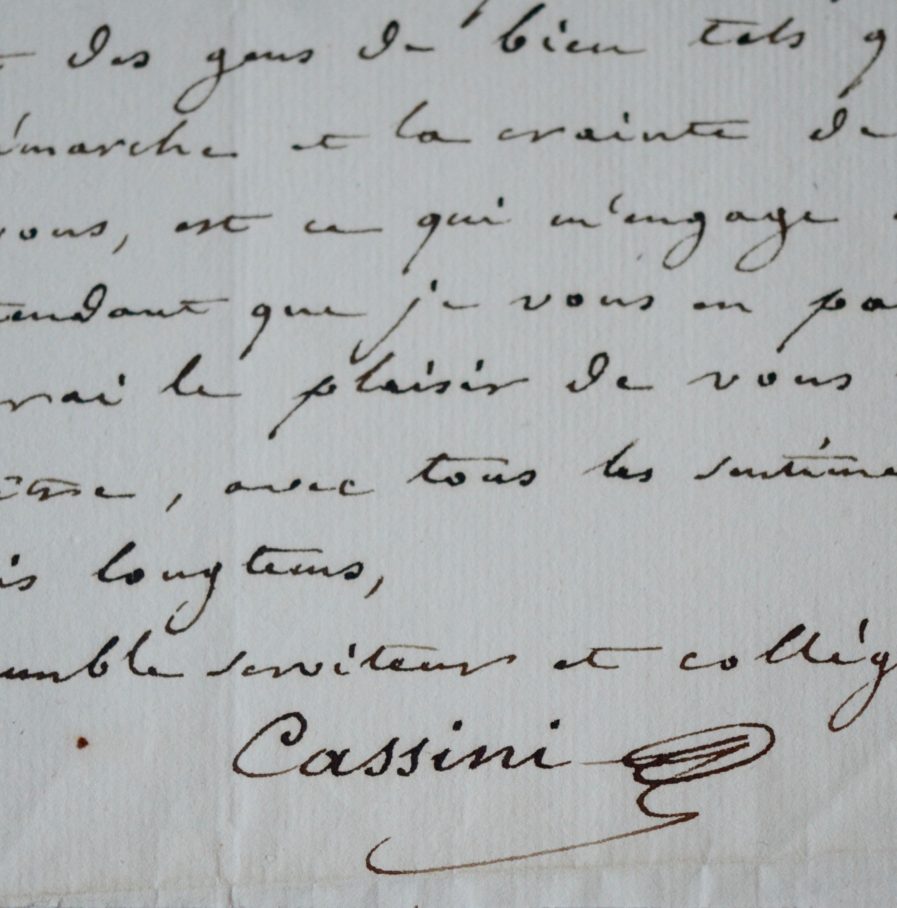 t des gens de bien tels q
émarche et la crainte de
vous, est ce qui m'engage
tendant que je vous en pa
rai le plaisir de vous
être, avec tous les sentime
is longtems,
umble serviteur et collég
Cassini